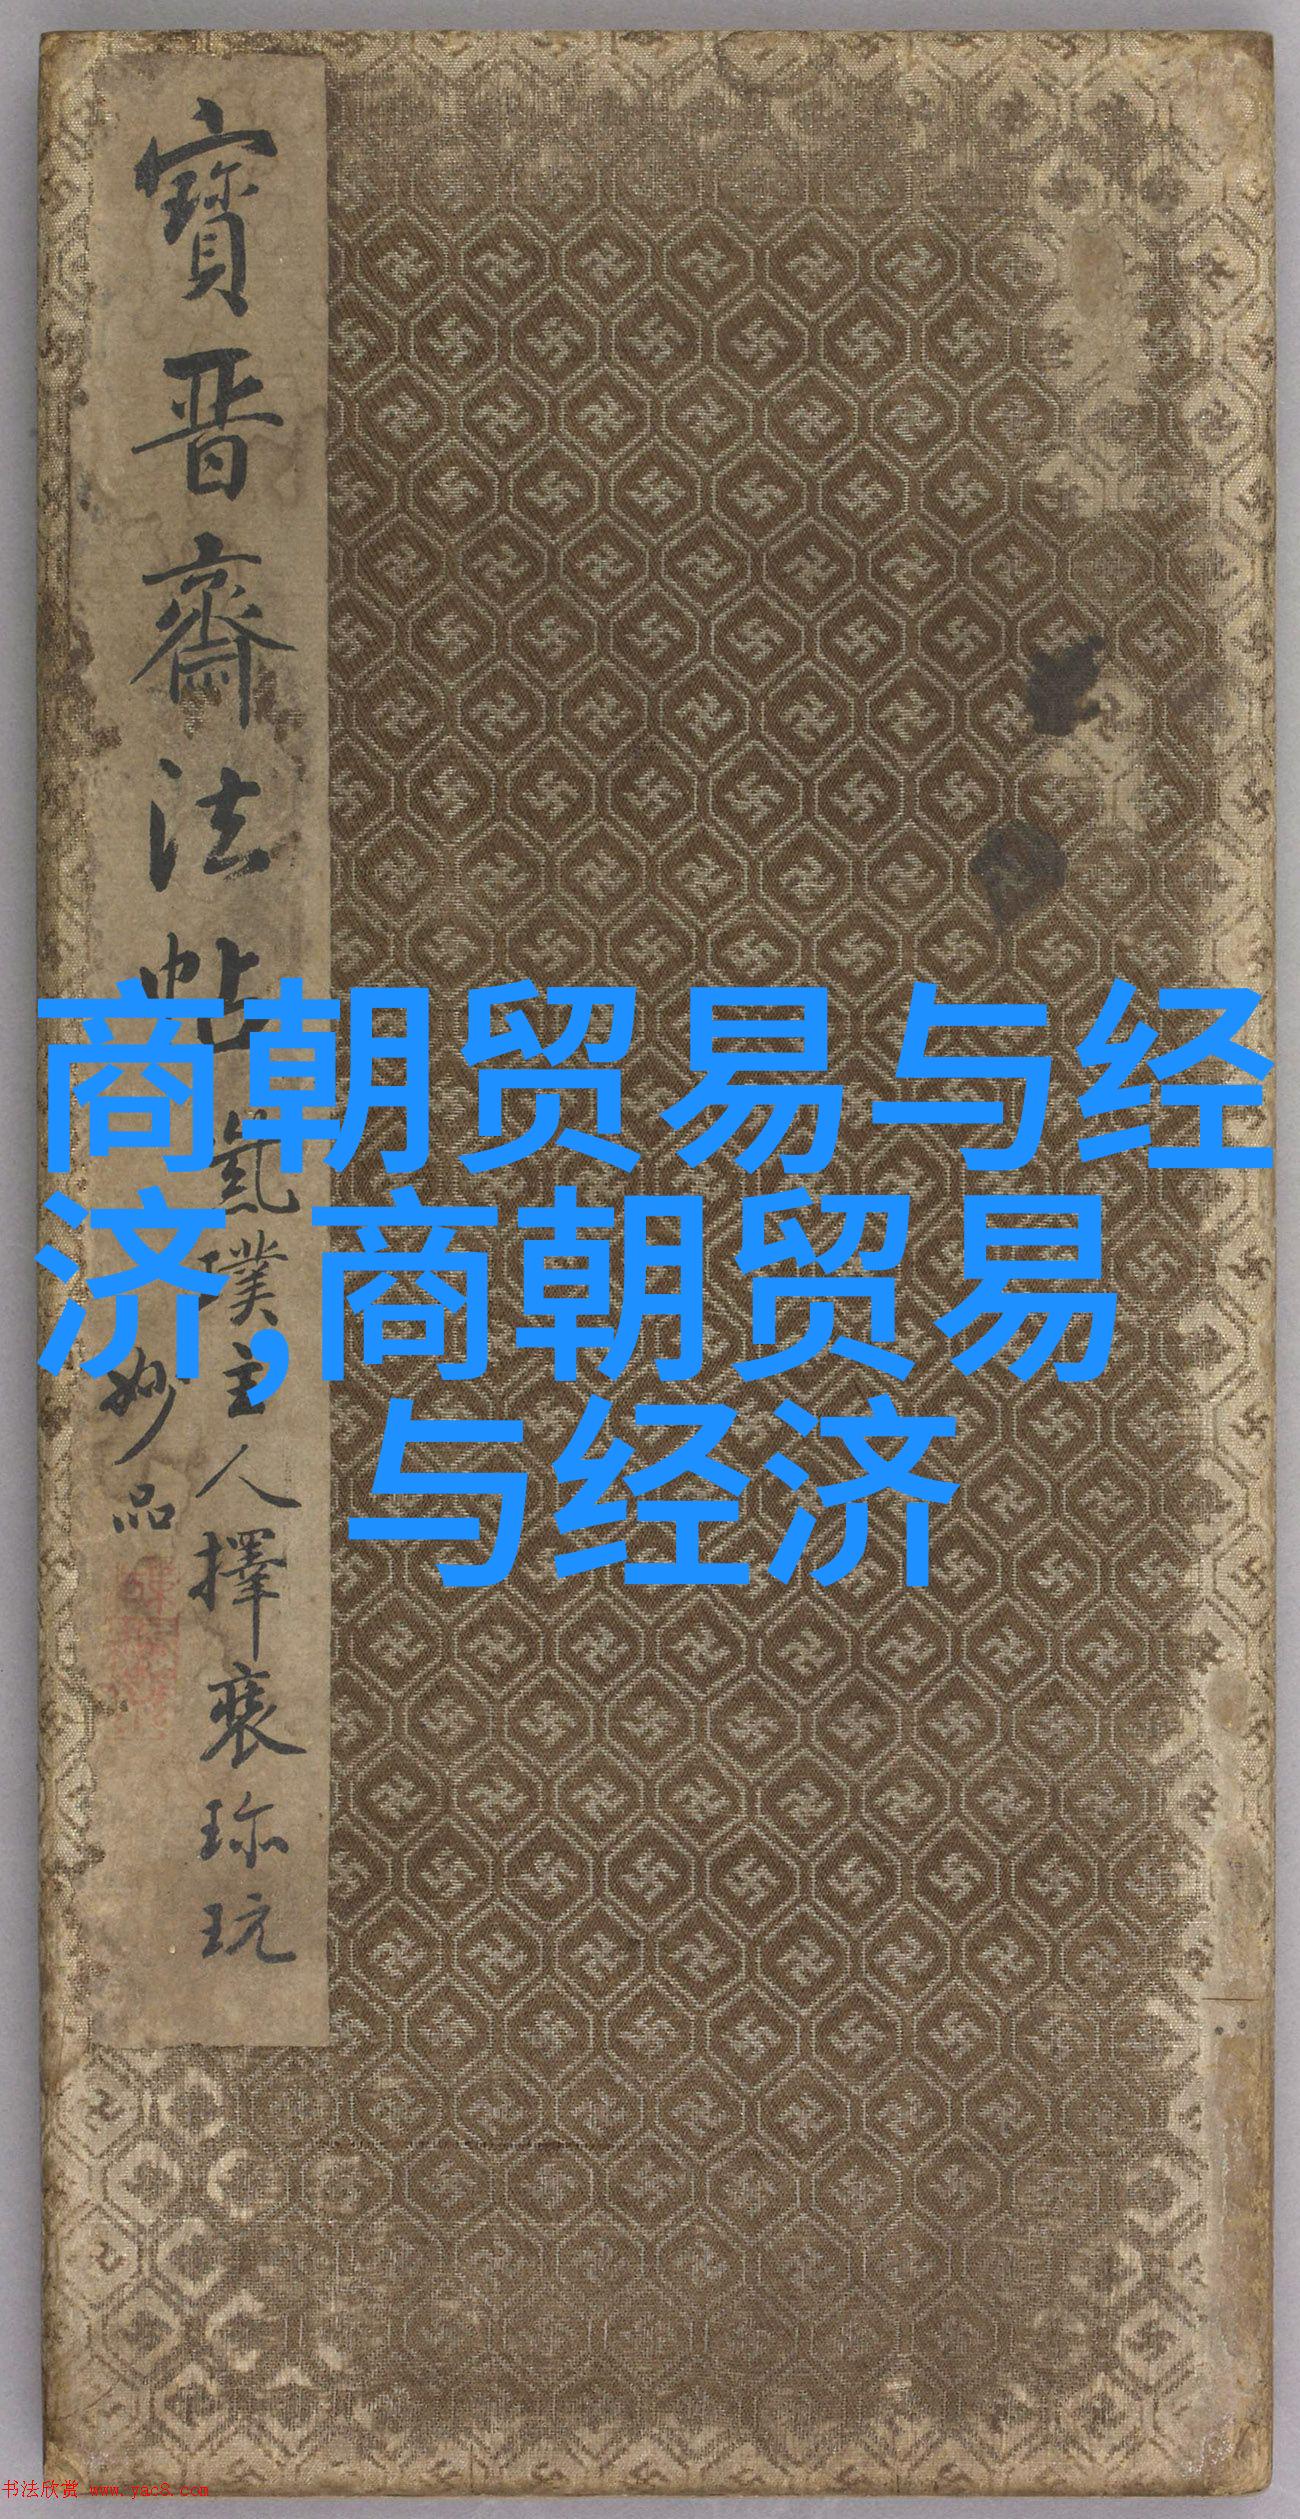 寶晋齋法帖
氣璞主人擇裘珎玩
妙品
商朝贸易与经
济,商朝贸易
与经济
书法欣赏 www.yac8.com